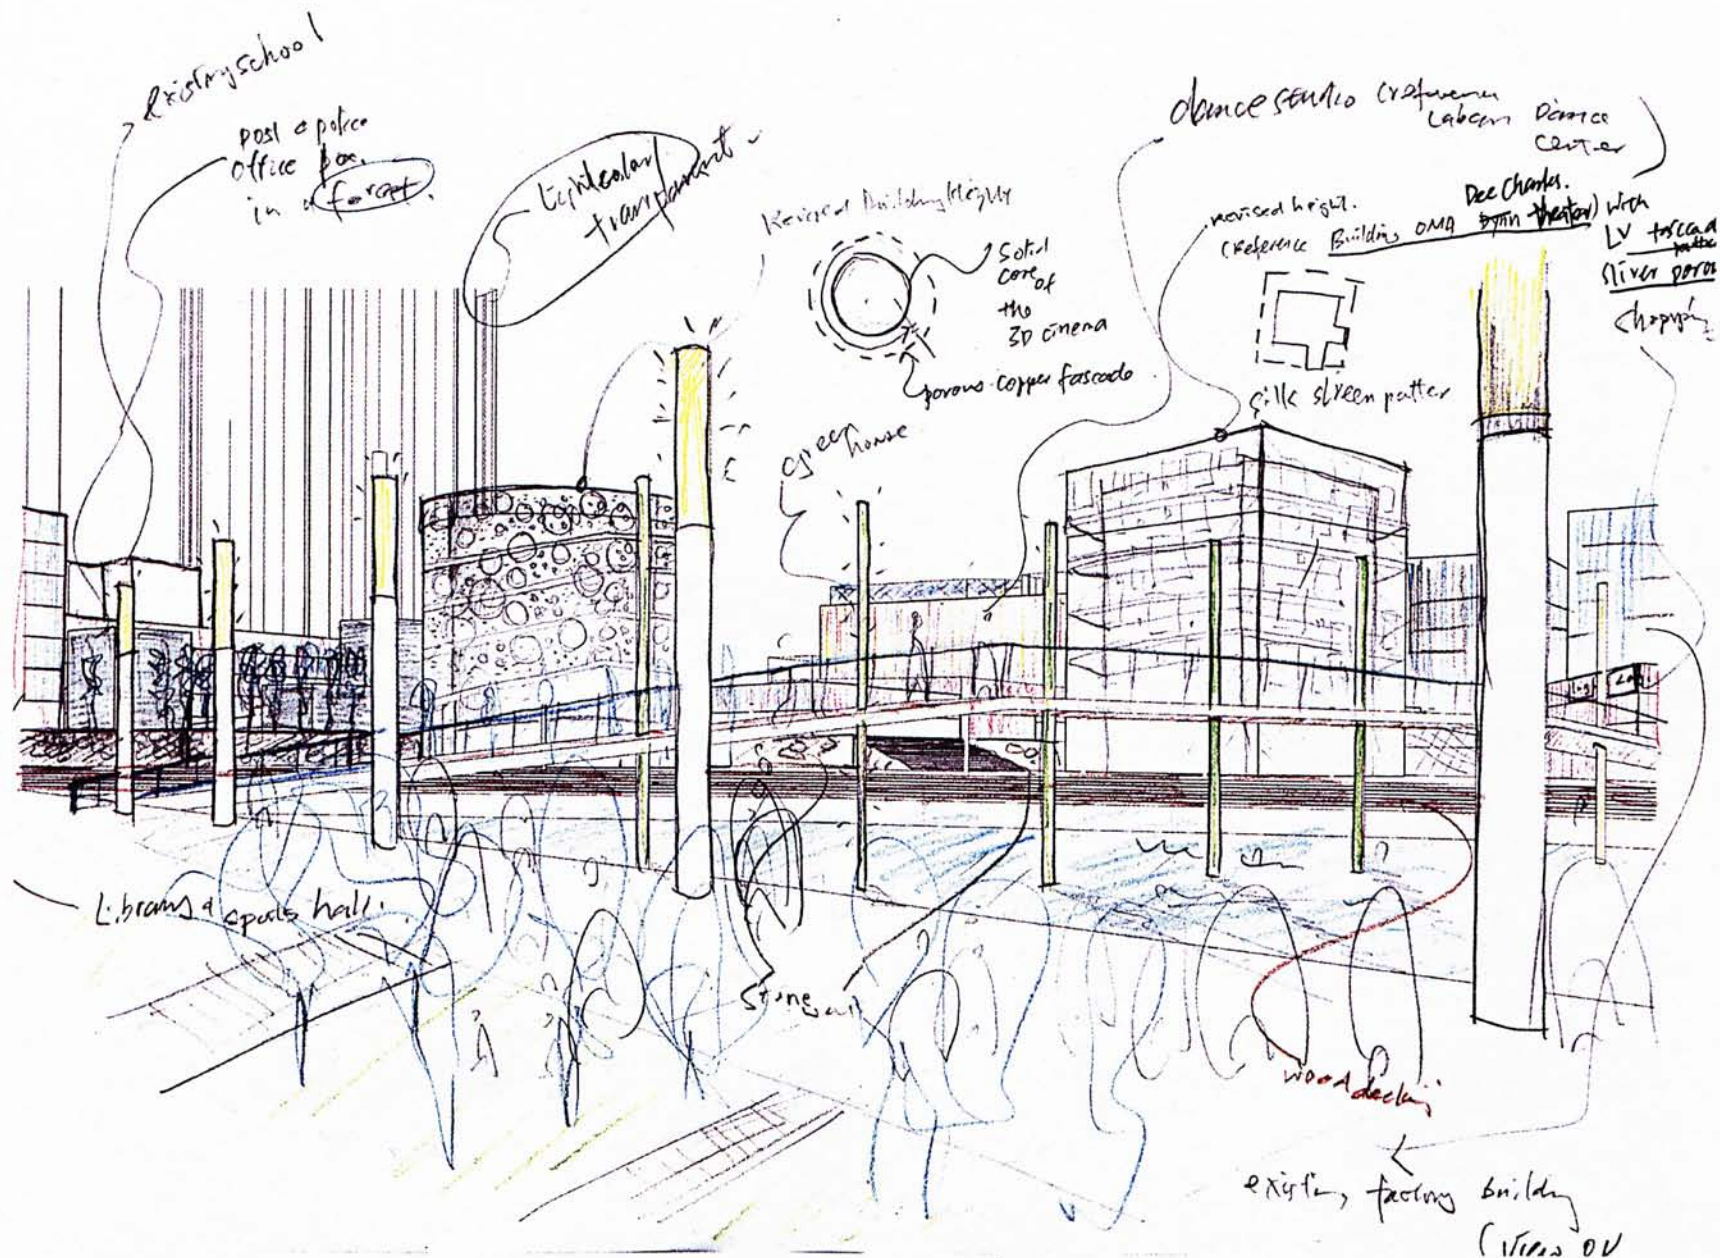 existing school
post & police
office box
in a forest
Light color/
transparent
Revised Building Heights
Solid
core of
the
3D cinema
porous copper fascade
green
house
dance studio (reference
Laban Dance
Center
revised height.
(reference Building OMA Dee Charles
theater) with
LV fascade
sliver porou
silk screen patter
Library & sports hall.
stone wall
wood decking
existing factory building